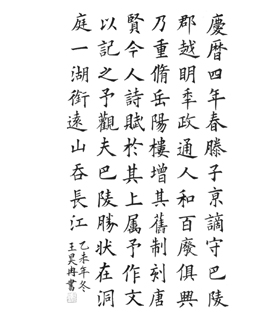 慶曆四年春滕子京謫守巴陵
郡越明年政通人和百廢俱興
乃重脩岳陽樓增其舊制刻唐
賢今人詩賦於其上属予作文
以記之予觀夫巴陵勝狀在洞
庭一湖銜遠山吞長江
乙未年冬
王昊冉書